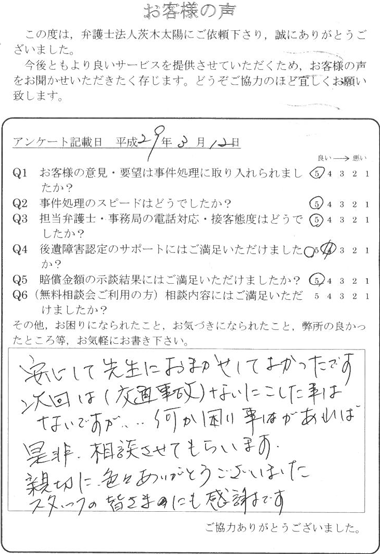 お客様の声
この度は，弁護士法人茨木太陽にご依頼下さり，誠にありがとうご
ざいました。
今後ともより良いサービスを提供させていただくため，お客様の声
をお聞かせいただきたく存じます。どうぞご協力のほど宜しくお願い
致します。
アンケート記載日 平成29年3月12日
良い→悪い
Q1 お客様の意見・要望は事件処理に取り入れられまし 5 4 3 2 1
たか？
Q2 事件処理のスピードはどうでしたか？ 5 4 3 2 1
Q3 担当弁護士・事務局の電話対応・接客態度はどうで 5 4 3 2 1
したか？
Q4 後遺障害認定のサポートにはご満足いただけました 5 4 3 2 1
か？
Q5 賠償金額の示談結果にはご満足いただけましたか？ 5 4 3 2 1
Q6（無料相談会ご利用の方）相談内容にはご満足いただ 5 4 3 2 1
けましたか？
その他，お困りになられたこと，お気づきになられたこと，弊所の良かっ
たところ等，お気軽にお書き下さい。
安心して先生におまかせしてよかったです
次回は（交通事故）ないにこした事は
ないですが… 何か困り事があれば
是非 相談させてもらいます。
親切に色々ありがとうございました
スタッフの皆さまにも感謝です
ご協力ありがとうございました。